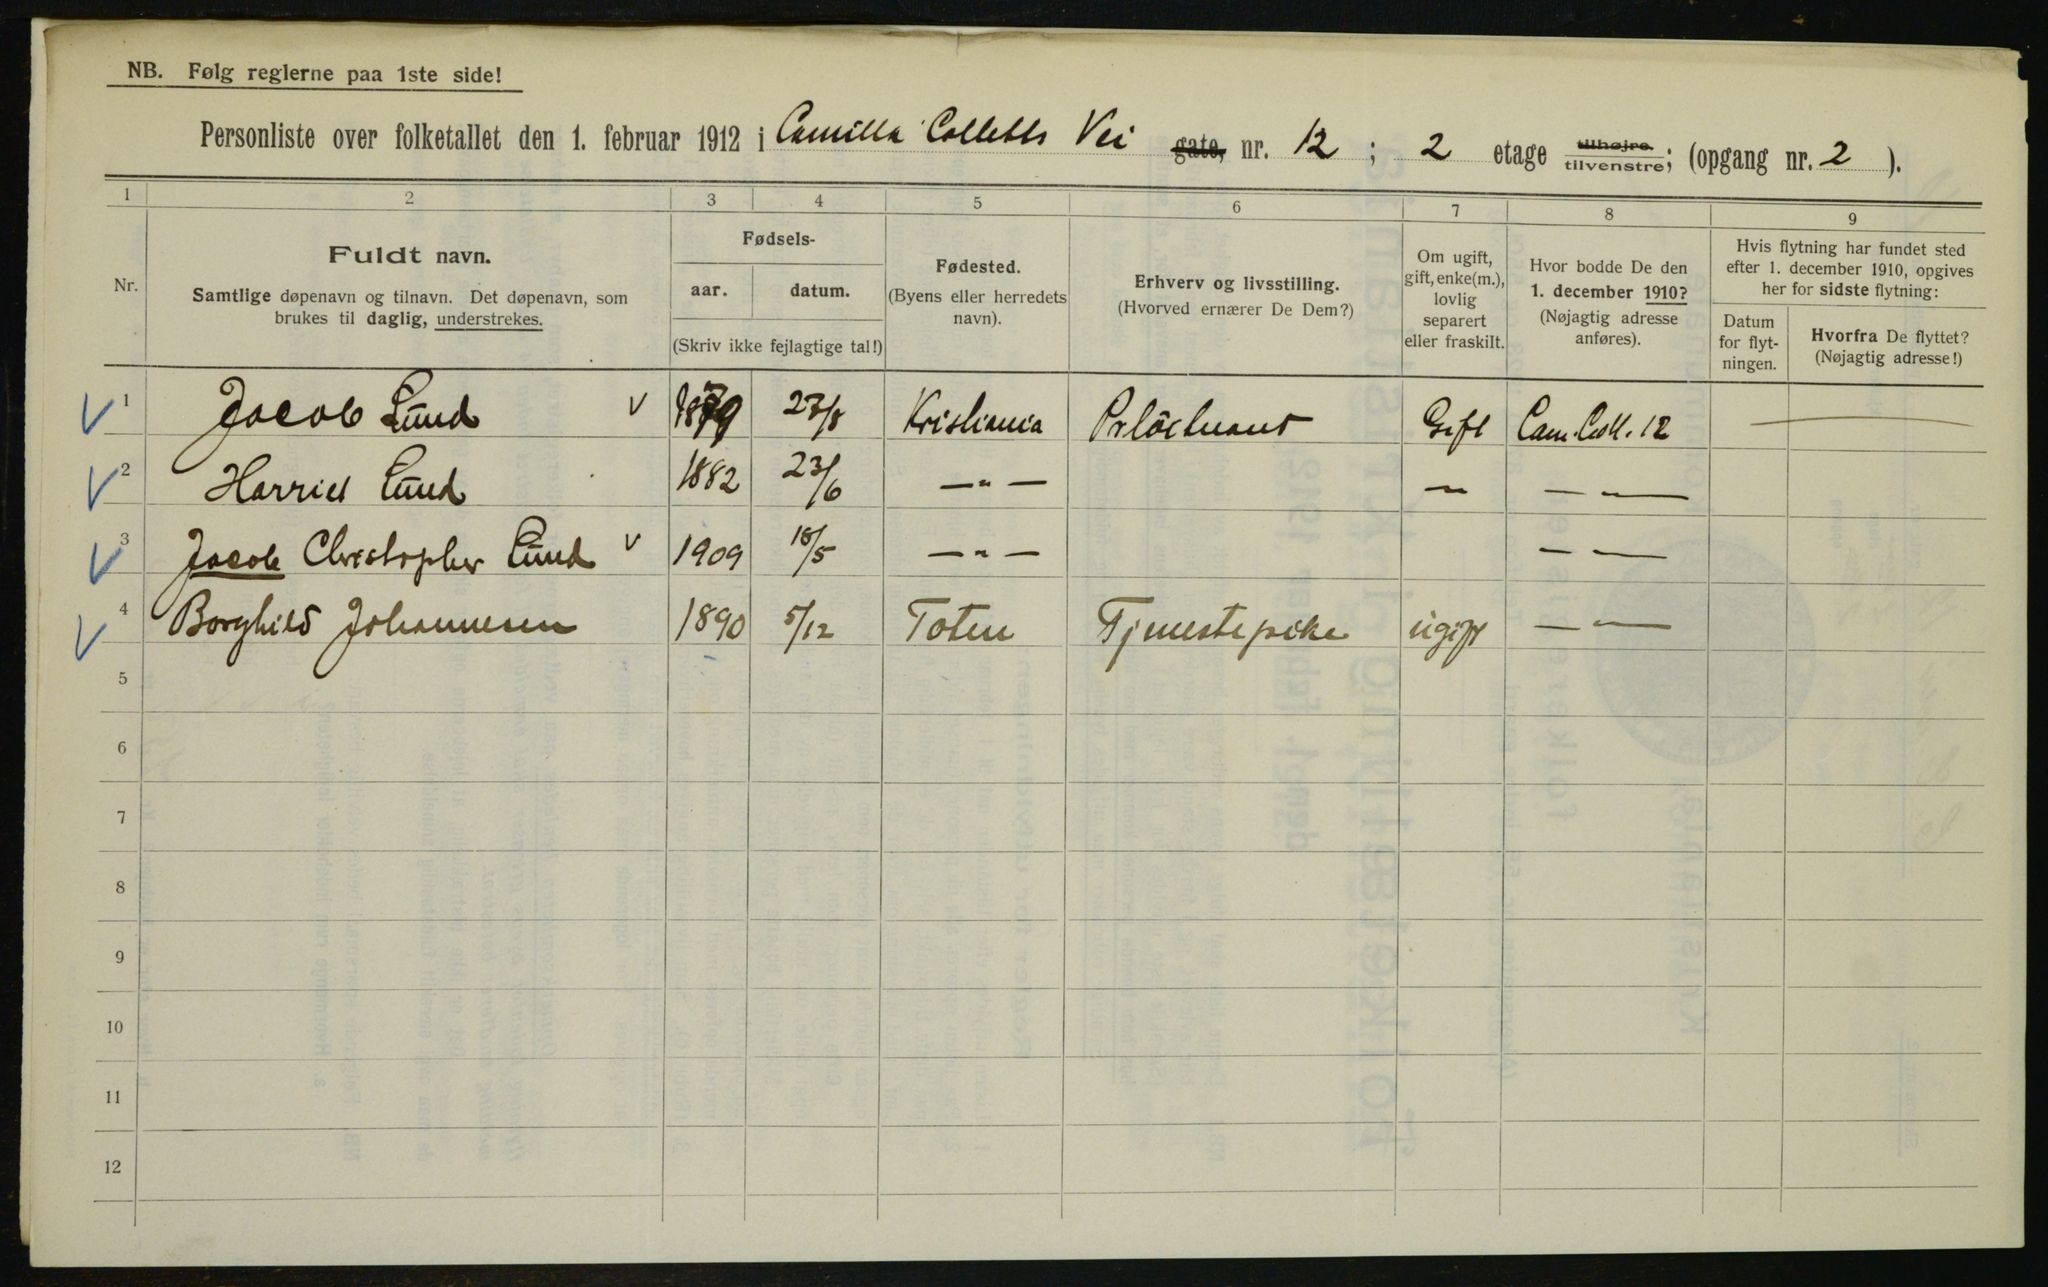 NB. Følg reglerne paa 1ste side!
Personliste over folketallet den 1. februar 1912 i Camilla Colletts Vei gate, nr. 12 ; 2 etage tilhøjre tilvenstre; (opgang nr. 2 ).
1 2 3 4 5 6 7 8 9
Nr.
Fuldt navn.
Samtlige døpenavn og tilnavn. Det døpenavn, som
brukes til daglig, understrekes.
Fødsels-
aar. datum.
(Skriv ikke fejlagtige tal!)
Fødested.
(Byens eller herredets
navn).
Erhverv og livsstilling.
(Hvorved ernærer De Dem?)
Om ugift,
gift, enke(m.),
lovlig
separert
eller fraskilt.
Hvor bodde De den
1. december 1910?
(Nøjagtig adresse
anføres).
Hvis flytning har fundet sted
efter 1. december 1910, opgives
her for sidste flytning:
Datum
for flyt-
ningen.
Hvorfra De flyttet?
(Nøjagtig adresse!)
V 1 Jacob Lund V 1879 27/8 Kristiania Gift Cam. Coll. 12 —
V 2 Harriet Lund 1882 23/6 — " — — — —
V 3 Jacob Christopher Lund V 1909 18/5 — " — — —
V 4 Borghild Johannesen 1890 5/12 Toten Tjenestepike ugift — —
5
6
7
8
9
10
11
12